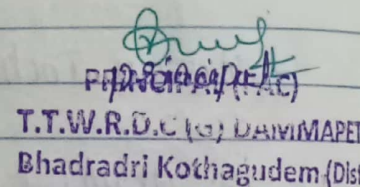 PRINCIPAL (FAC)
T.T.W.R.D.C (G) DAMMAPET
Bhadradri Kothagudem (Dist